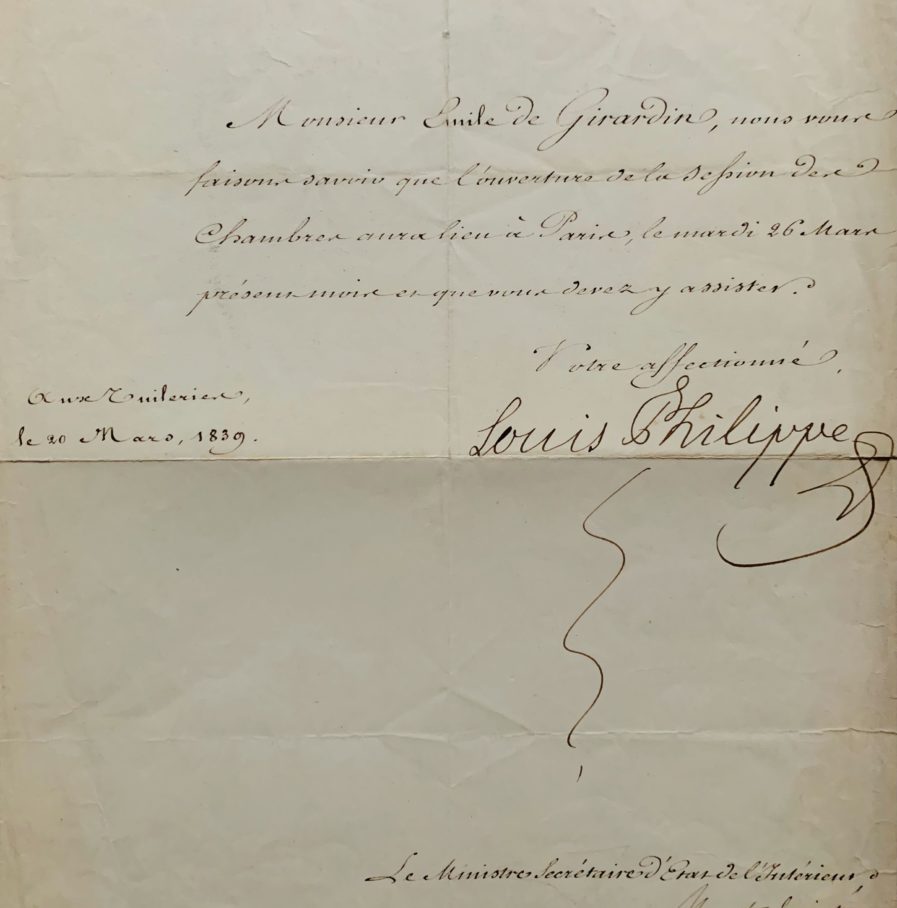 Monsieur Emile de Girardin, nous vous
faisons savoir que l'ouverture de la Session des
Chambres aura lieu à Paris, le mardi 26 Mars
présent mois et que vous devez y assister.
Votre affectionné,
Aux Tuileries,
le 20 Mars, 1839.
Louis Philippe
Le Ministre Secrétaire d'Etat de l'Intérieur,